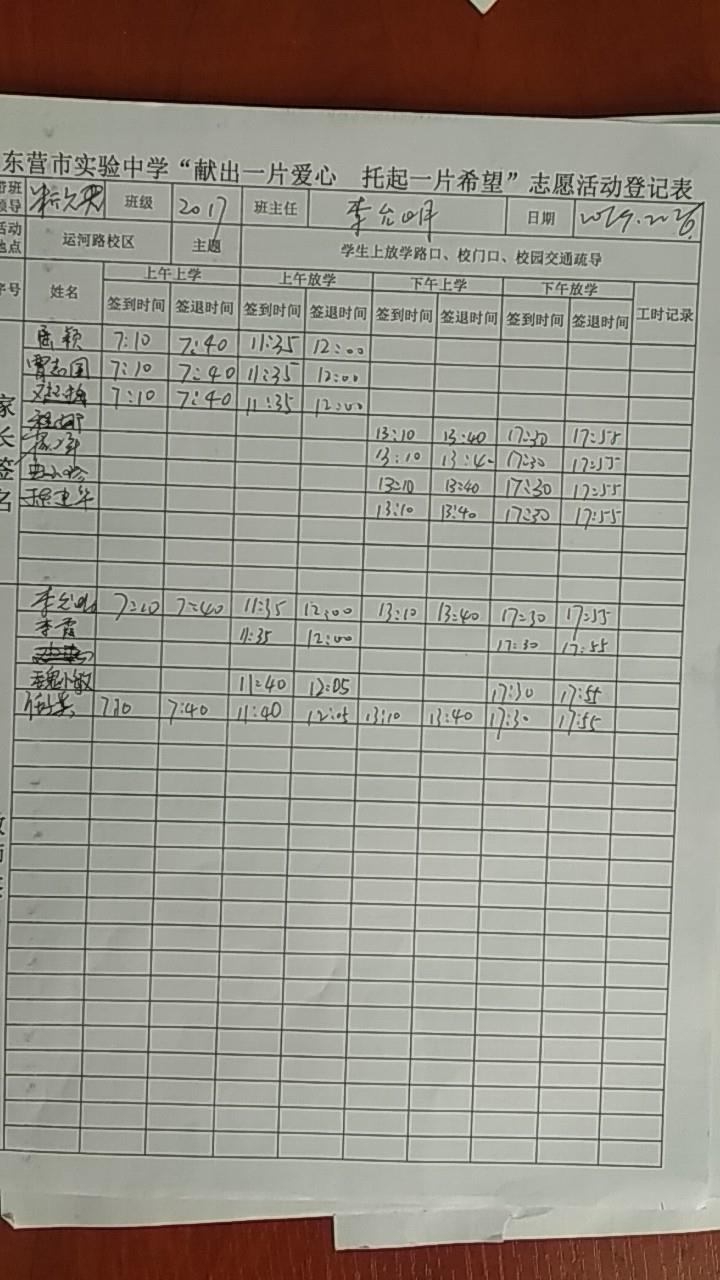 东营市实验中学“献出一片爱心 托起一片希望”志愿活动登记表
带班领导 班级 2017 班主任 李允明 日期
活动地点 运河路校区 主题 学生上放学路口、校门口、校园交通疏导
序号 姓名 上午上学 上午放学 下午上学 下午放学 工时记录
签到时间 签退时间 签到时间 签退时间 签到时间 签退时间 签到时间 签退时间
家长签名
7:10 7:40 11:35 12:00
贾志国 7:10 7:40 11:35 12:00
7:10 7:40 11:35 12:00
程娜 13:10 13:40 17:30 17:55
13:10 13:40 17:30 17:55
13:10 13:40 17:30 17:55
13:10 13:40 17:30 17:55
李允明 7:10 7:40 11:35 12:00 13:10 13:40 17:30 17:55
李霞 11:35 12:00 17:30 17:55
魏小敏 11:40 12:05 17:30 17:55
7:10 7:40 11:40 12:05 13:10 13:40 17:30 17:55